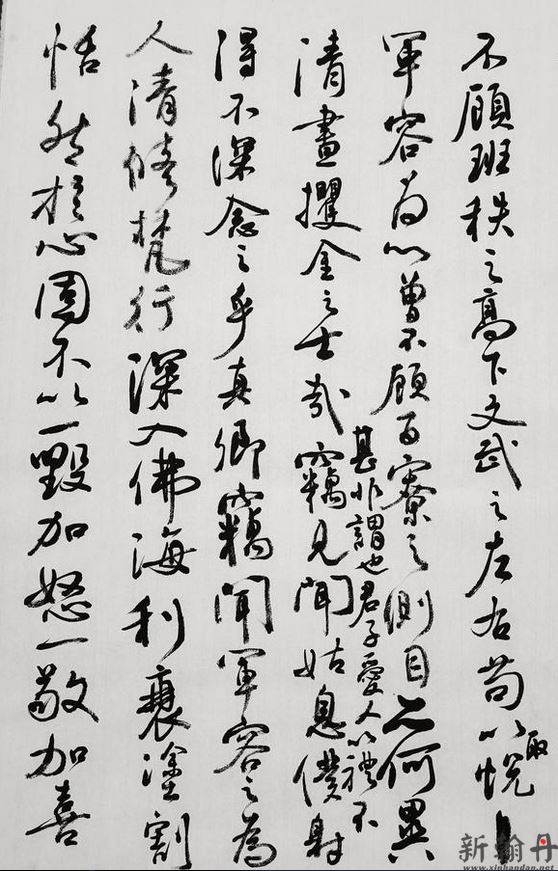 不顧班秩之高下文武之左右苟以取悦
軍容為心曾不顧百寮之側目亦何異
清晝攫金之士哉竊見聞姑息僕射
甚非謂也君子愛人以禮不
得不深念之乎真卿竊聞軍容之為
人清修梵行深入佛海利衰塗割
恬然於心固不以一毀加怒一敬加喜
新翰丹
www.xinhandan.net